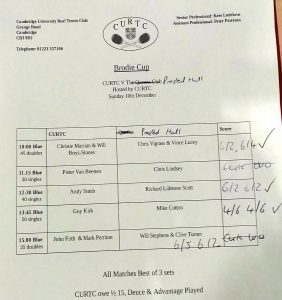 Cambridge University Real Tennis Club
Grange Road
Cambridge
CB3 9DJ
Telephone: 01223 357106
CURTC
Senior Professional: Kees Ludekens
Assistant Professional: Peter Paterson
Brodie Cup
CURTC V The Queens Club Prested Hall
Hosted by CURTC
Sunday 10th December
CURTC Prested Hall Score
10:00 Blue 45 doubles Christie Marrian & Will Boys-Stones Chris Vigrass & Vince Lucey 6/2, 6/4 ✓
11.15 Blue 30 singles Pieter Van Beenen Chris Lindsey
12:30 Blue 40 singles Andy Smith Richard Lidstone Scott 6/2 6/2 ✓
13:45 Blue 50 singles Guy Kirk Mike Cotton 4/6 4/6 ✓
15.00 Blue 35 doubles John Firth & Mark Perriton Will Stephens & Clive Turner 6/5 6/2
All Matches Best of 3 sets
CURTC owe ½ 15, Deuce & Advantage Played